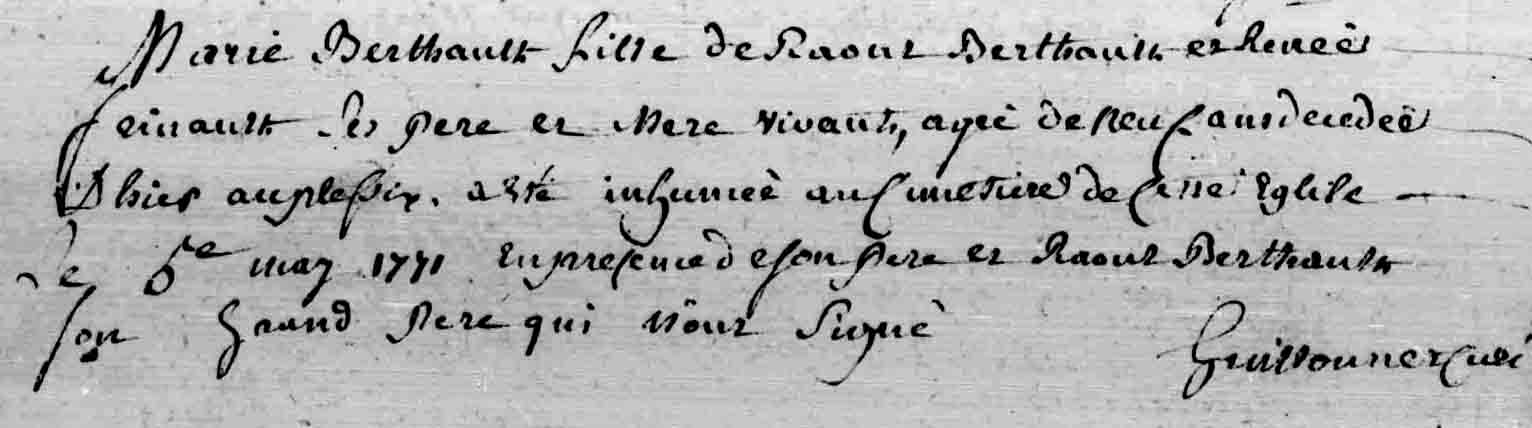 Marie Berthault fille de Raoul Berthault et Reneé
feinault ses pere et Mere vivants, ageé de neuf ans decedeé
D'hier au plessix, a été inhumeé au Cimetiere de Cette Eglise
Le 5e may 1771 En presence de son pere et Raoul Berthault
son Grand Pere qui n'ont Signé
Guillonnet Curé